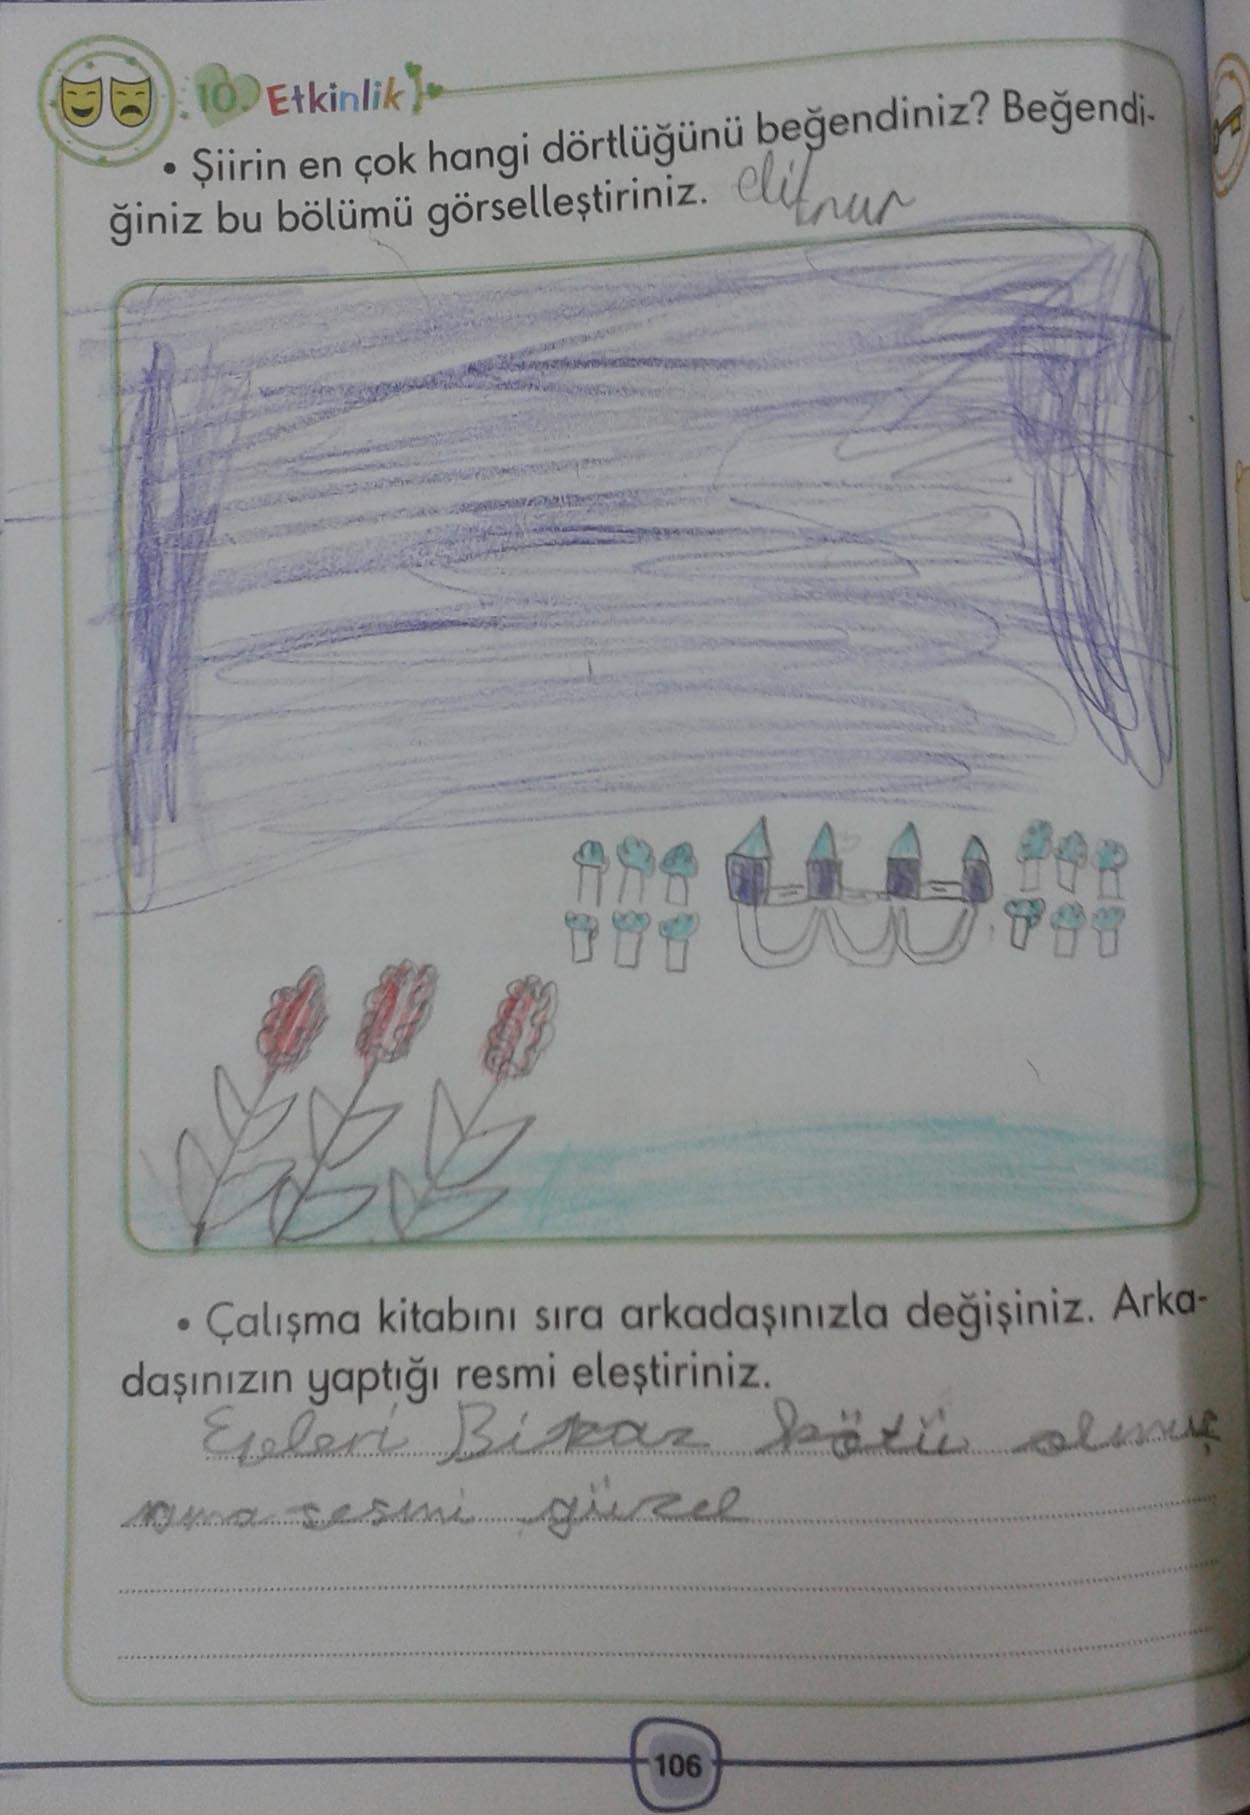 10. Etkinlik
• Şiirin en çok hangi dörtlüğünü beğendiniz? Beğendi-
ğiniz bu bölümü görselleştiriniz. elifnur
• Çalışma kitabını sıra arkadaşınızla değişiniz. Arka-
daşınızın yaptığı resmi eleştiriniz.
Bi kötü olmuş
ama resmi güzel
106